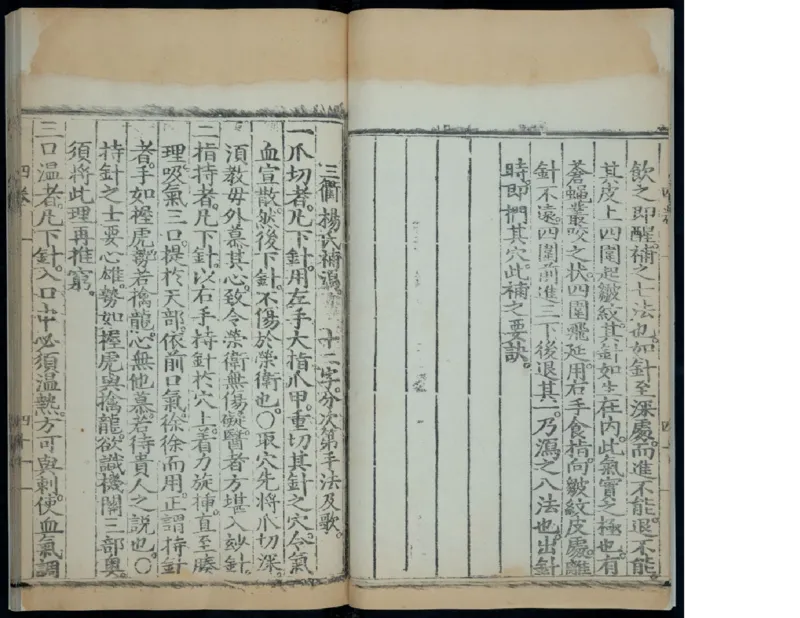 飲之即醒補之七法也如針至深處而進不能退不能
其皮上四圍起皺紋其針如生在內此氣實之極也有
蒼蠅叢咬之狀四圍飛延用右手食指向皺紋皮處離
針不遠四圍前進三下後退其一乃瀉之八法也出針
時即捫其穴此補之要訣
三衢楊氏補瀉 十二字分次第手法及歌
一爪切者凡下針用左手大指爪甲重切其針之穴令氣
血宣散然後下針不傷於榮衛也〇取穴先將爪切深
須教毋外慕其心致令榮衛無傷礙醫者方堪入玅針
二指持者凡下針以右手持針於穴上着力旋揷直至腠
理吸氣三口提於天部依前口氣徐徐而用正謂持針
者手如握虎勢若擒龍心無他慕若待貴人之說也〇
持針之士要心雄勢如握虎與擒龍欲識機關三部奧
須將此理再推窮
三口溫者凡下針入口中必須溫熱方可與刺使血氣調
四卷